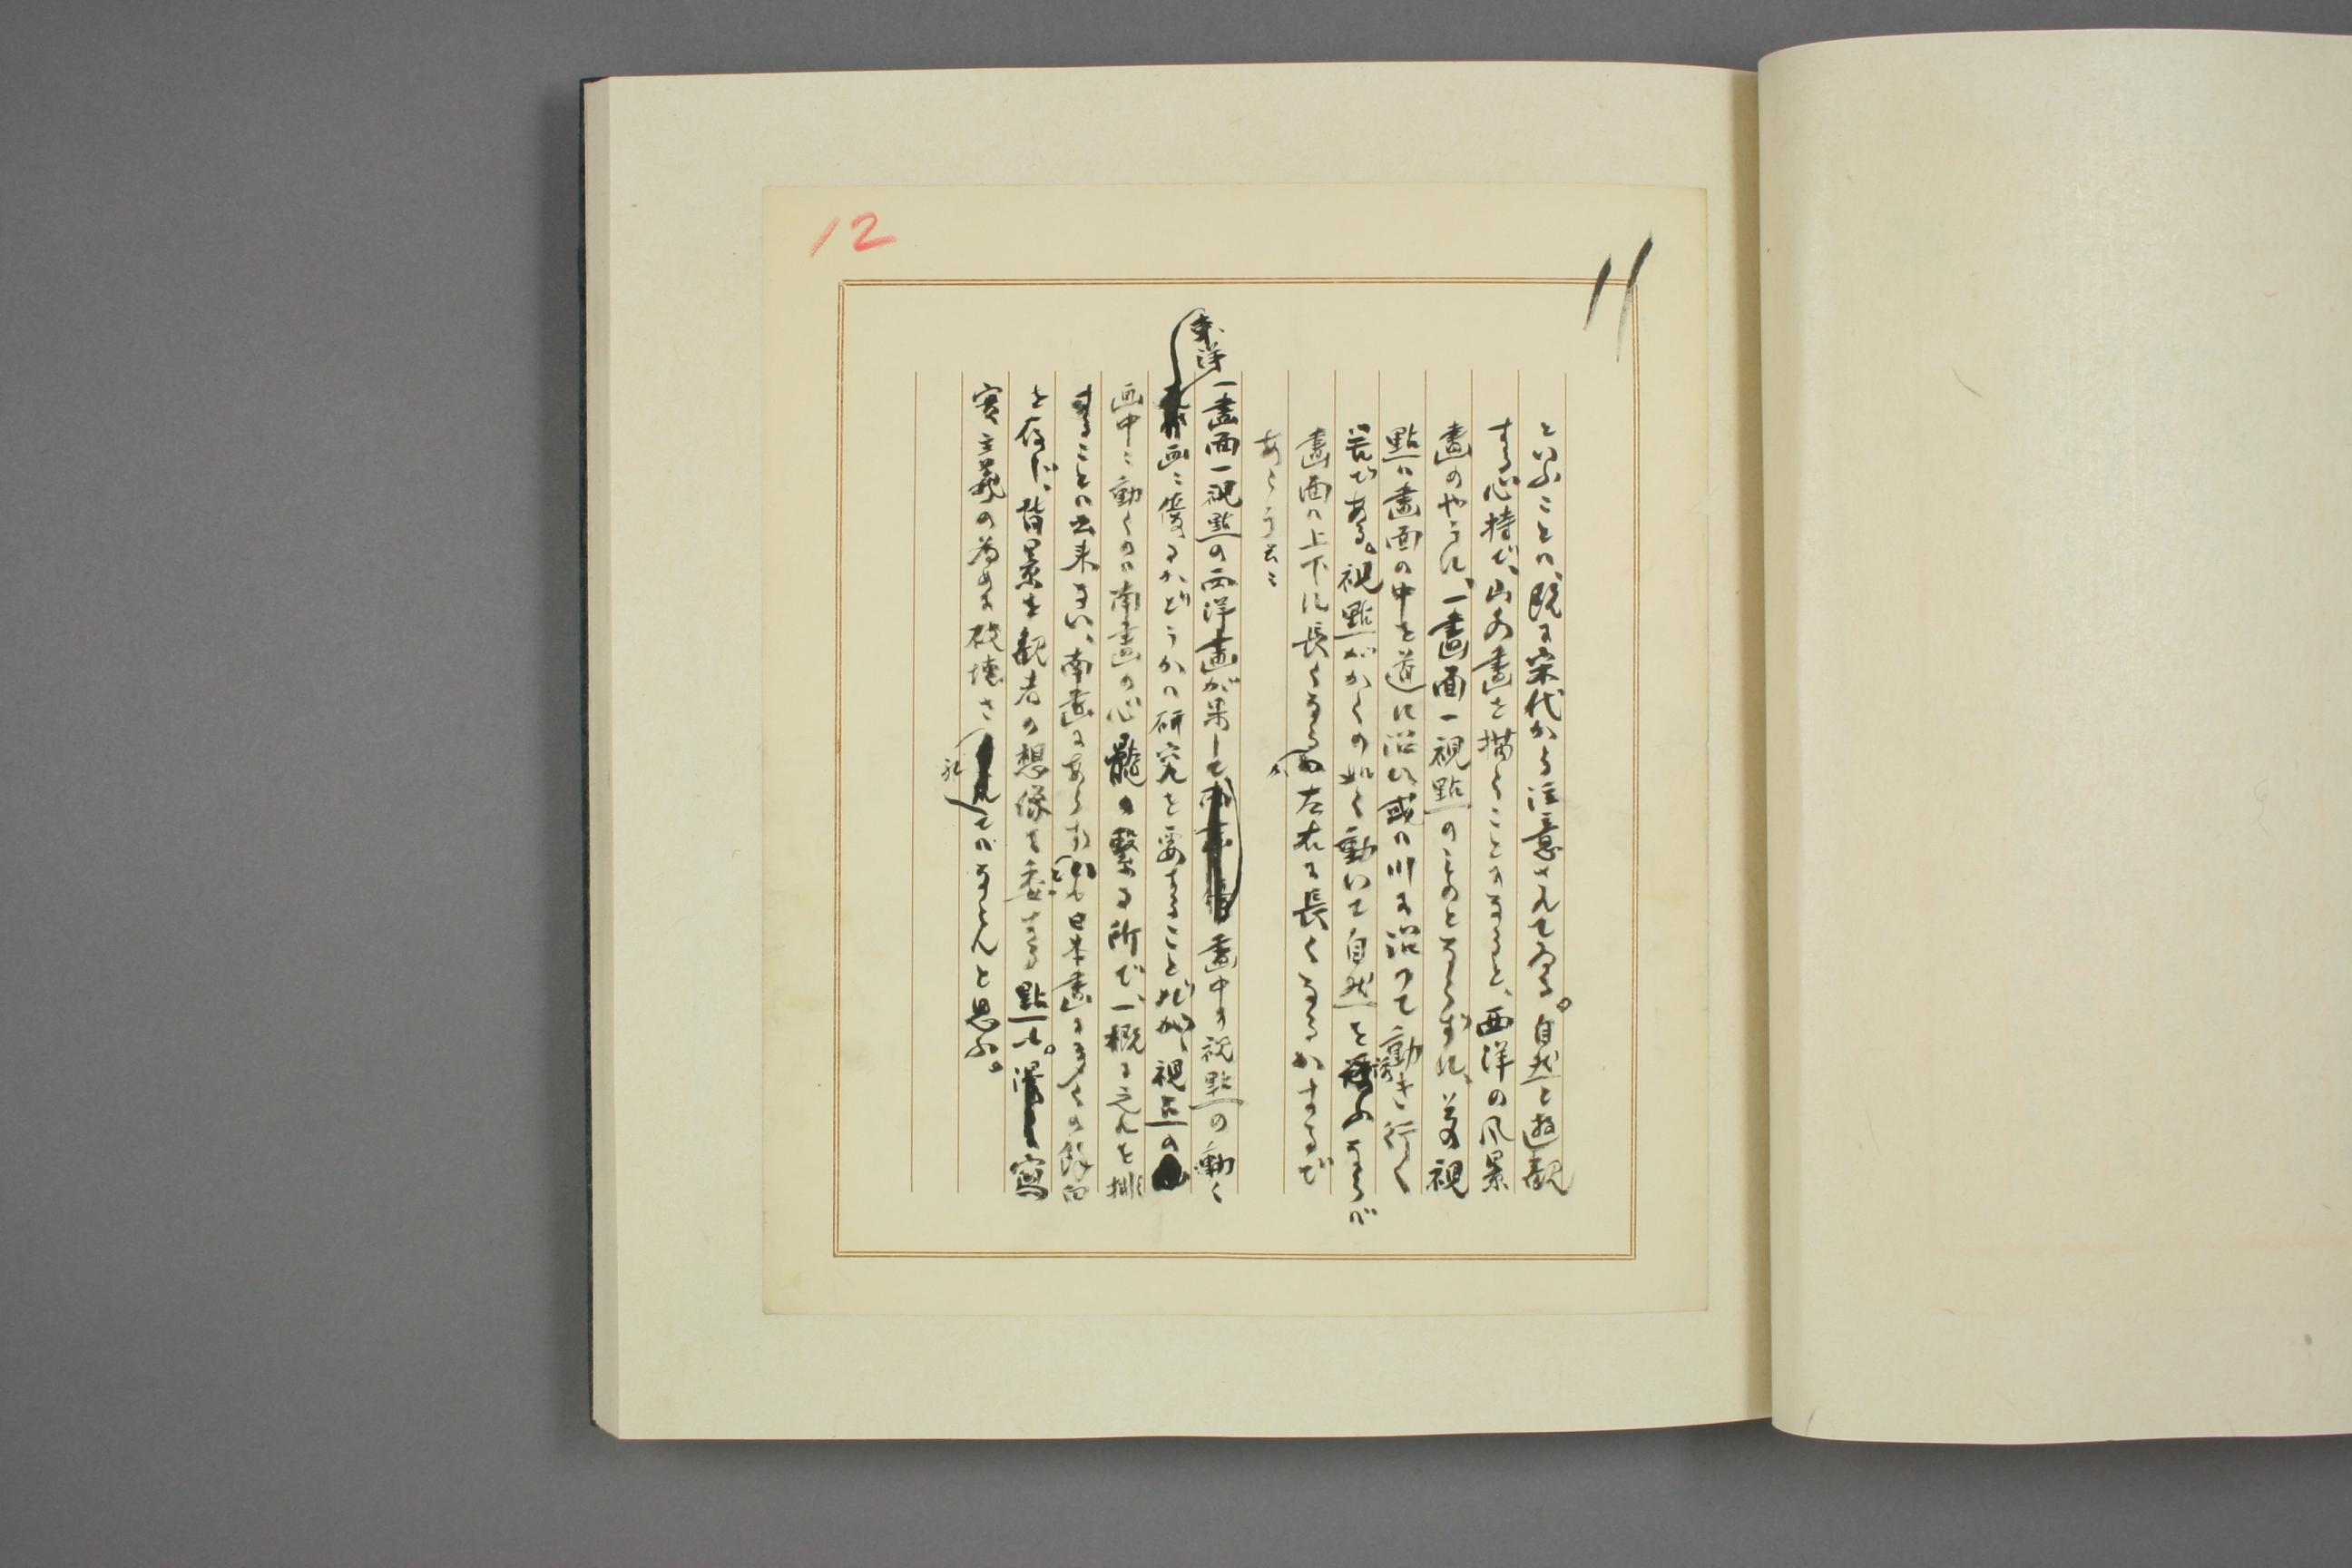 11
12
といふことは、既に宋代から注意されてゐる。自然と遊観
する心持で、山水畫を描くことになると、西洋の風景
畫のやうに、一畫面一視點のものとならずに、其の視
點は畫面の中を道に沿ひ或は川に沿つて動き行く
筈である。視點がかくの如く動いて自然を誘ふならば
畫面は上下に長くなるか左右に長くなるかするで
あらう云々
一畫面一視點の西洋畫が果して畫中に視點の動く
東洋画に優るかどうかは研究を要することだが、視点の
画中に動くのは南畫の心髄の繋る所で、一概に之れを排
することは出来ない、南畫にあらずとも日本畫に多くの餘白
を存じ、背景を観者の想像に委する點は、寫
實主義の為めに破壊されてはならんと思ふ。